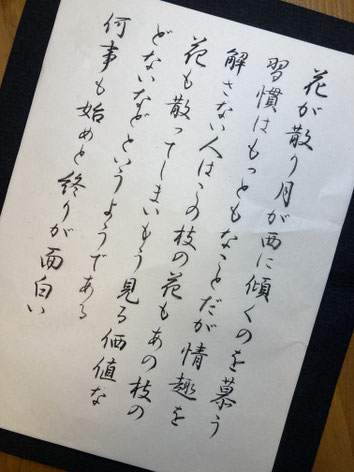 花が散り月が西に傾くのを慕う
習慣はもっともなことだが情趣を
解さない人はこの枝の花もあの枝の
花も散ってしまいもう見る価値な
どないなどというようである
何事も始めと終りが面白い